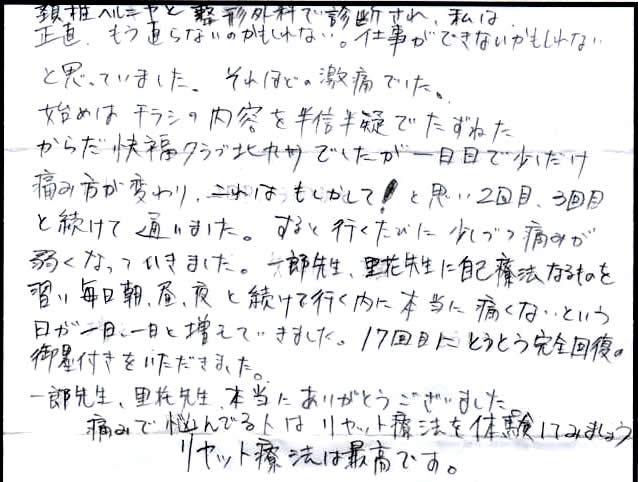 頚椎ヘルニヤと整形外科で診断され、私は
正直、もう直らないのかもしれない。仕事ができないかもしれない
と思っていました。それほどの激痛でした。
始めはチラシの内容を半信半疑でたずねた
からだ快福クラブ北九州でしたが一日目で少しだけ
痛み方が変わり、これはもしかして!と思い2回目、3回目
と続けて通いました。すると行くたびに少しづつ痛みが
弱くなっていきました。一郎先生、里花先生に自己療法なるものを
習い毎日朝、昼、夜と続けて行く内に本当に痛くないという
日が一日、一日と増えていきました。17回目にとうとう完全回復の
御墨付きをいただきました。
一郎先生、里花先生、本当にありがとうございました
痛みで悩んでる人はリセット療法を体験してみましょう
リセット療法は最高です。